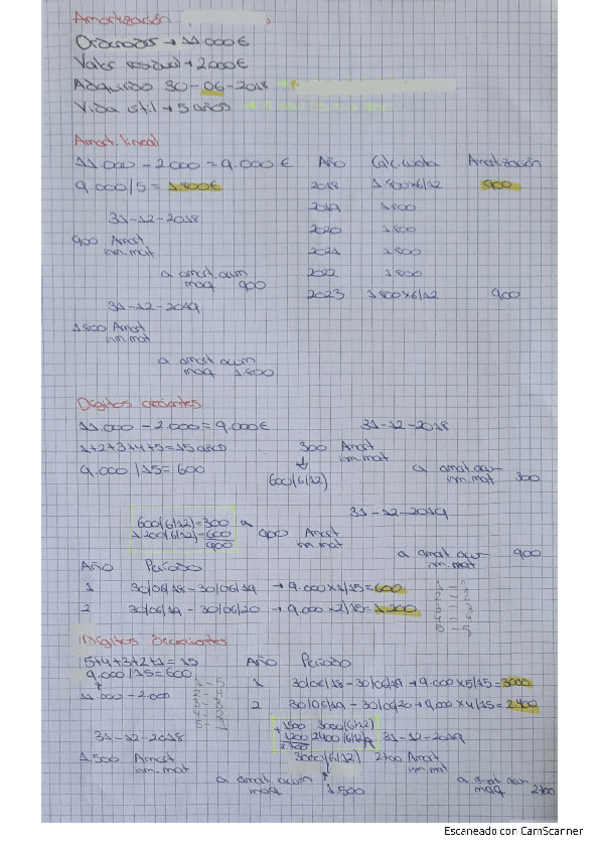 Amortización
Ordenador → 11.000€
Valor residual → 2000€
Adquirido 30-06-2018
Vida útil → 5 años
Amort. lineal
11.000 - 2.000 = 9.000 €
9.000/5 = 1800€
31-12-2018
900 Amort
inm.mat
a amort.acum
maq 900
31-12-2019
1800 Amort
inm.mat
a amort acum
maq 1.800
Año Calc. cuota Amortización
2018 1800x6/12 900
2019 1800
2020 1800
2021 1800
2022 1800
2023 1800x6/12 900
Dígitos crecientes
11.000 - 2.000 = 9.000€
1+2+3+4+5=15 años
9.000/15 = 600
31-12-2018
300 Amort
inm.mat
600(6/12)
a amat.acu-
inm.mat 300
600(6/12)=300
1200(6/12)=600
900
31-12-2019
900 Amort
inm.mat
a amat.acu-
inm.mat 900
Año Periodo
1 30/06/18 - 30/06/19 → 9.000x1/15=600
2 30/06/19 - 30/06/20 → 9.000x2/15=1.200
1 - 1
2 - 2
3 - 3
4 - 4
5 - 5
Dígitos decrecientes
5+4+3+2+1=15
9.000/15=600
11.000 - 2.000
1 - 5
2 - 4
3 - 3
4 - 2
5 - 1
Año Periodo
1 30/06/18 - 30/06/19 → 9.000x5/15=3000
2 30/06/19 - 30/06/20 → 9.000x4/15=2400
1500 3000(6/12)
+1200 2400(6/12)
2.700
31-12-2018
1500 Amort
inm.mat
3000(6/12)
a amort acum
maq 1500
31-12-2019
2700 Amort
inm.mat
a amat acu-
maq 2700
Escaneado con CamScanner